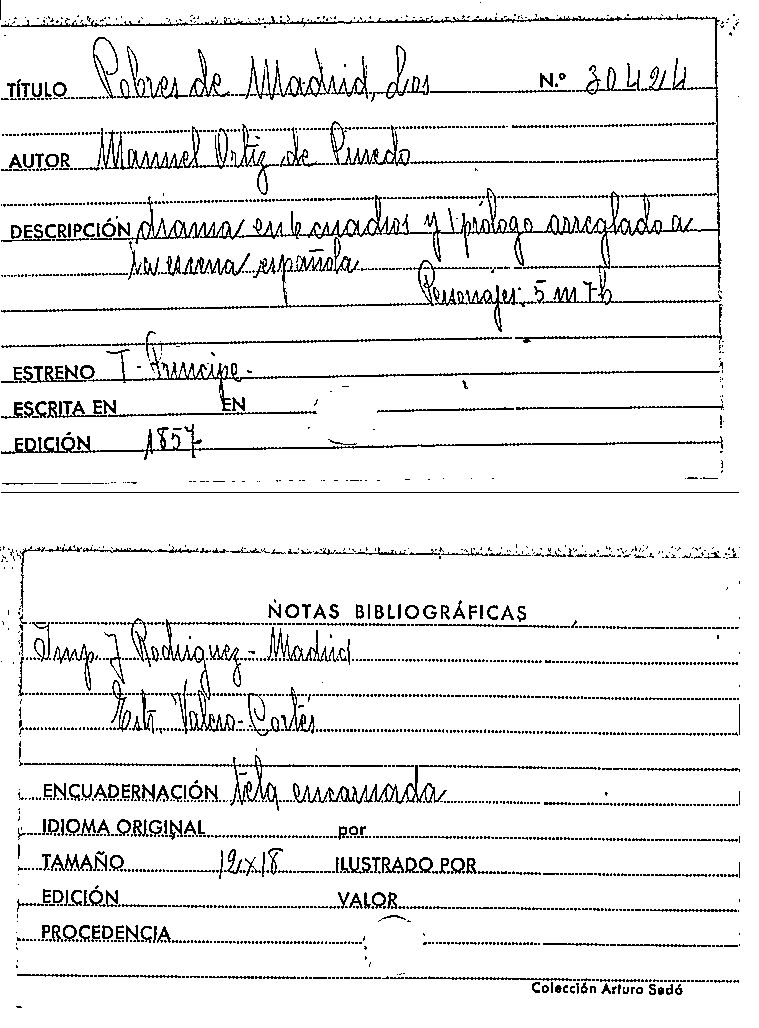 TÍTULO Pobres de Madrid, Los N.º 30424
AUTOR Manuel Ortiz de Pinedo
DESCRIPCIÓN drama en 6 cuadros y 1 prólogo arreglado a
la escena española
Personajes: 5 m 7 h
ESTRENO T. Príncipe.
ESCRITA EN EN
EDICIÓN 1857
NOTAS BIBLIOGRÁFICAS
Imp J Rodriguez - Madrid
Valero-Cortés
ENCUADERNACIÓN tela encarnada
IDIOMA ORIGINAL por
TAMAÑO 12x18 ILUSTRADO POR
EDICIÓN VALOR
PROCEDENCIA
Colección Arturo Sedó